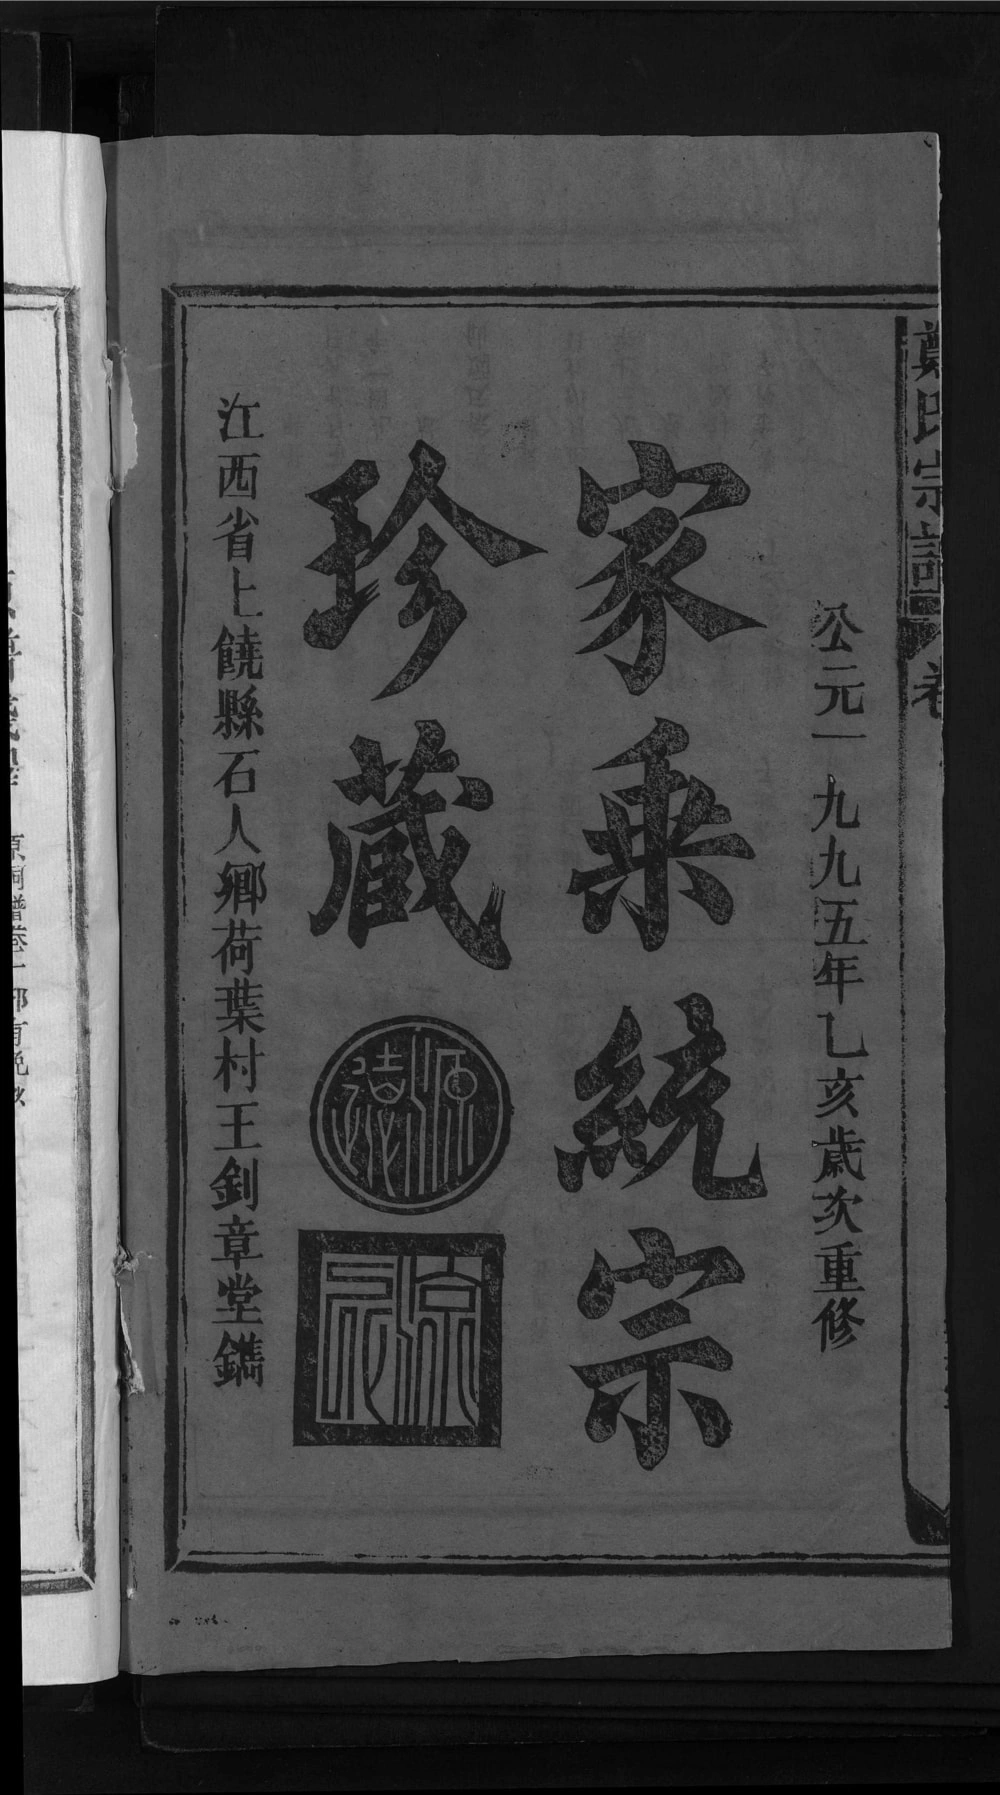 鄭氏宗譜
卷
公元一九九五年乙亥歲次重修
家乘統宗
珍藏
源遠
江西省上饒縣石人鄉荷葉村王釗章堂鐫